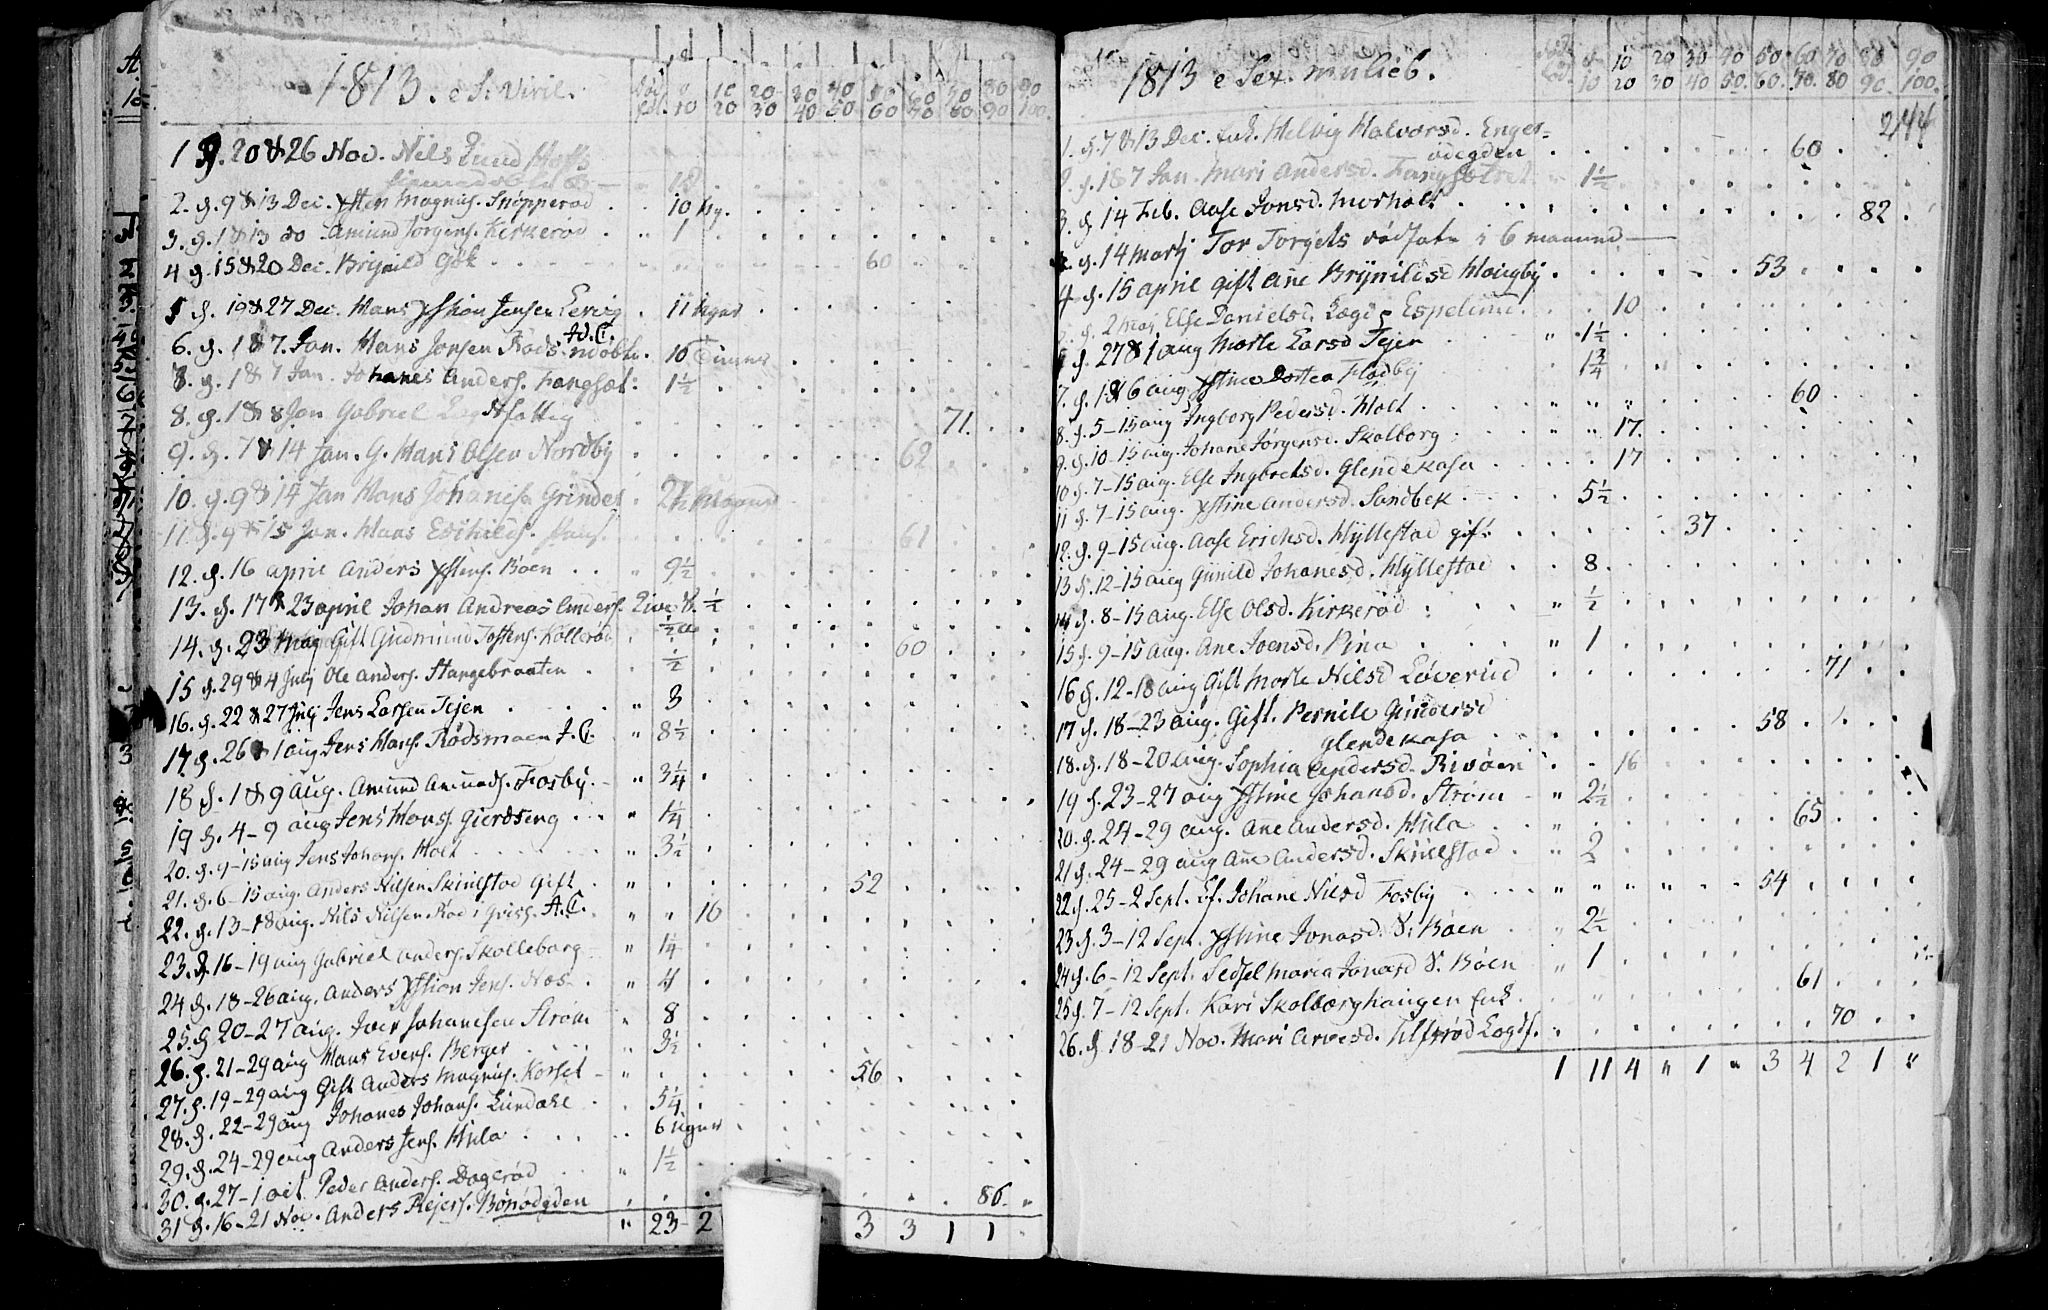 1813. e S. Viril.
Død fød. 0 10 | 10 20 | 20 30 | 30 40 | 40 50 | 50 60 | 60 70 | 70 80 | 80 90 | 90 100.
1 d. 20 & 26 Nov. Nils Lund Hoffs
2. d. 9 & 13 Dec. Magnus. Snopperød 10
3. d. 1 & 13 do Amund Jorgens. Kirkerød 1
4 d. 15 & 20 Dec. Brynild Gök 60
5 d. 19 & 27 Dec. Hans Jensen Lervig 11 uger
6. d. 1 & 7. Jan. Hans Jonsen Røds A.C. 10 Timer
7. d. 1 & 7 Jan. Johanes Anders. Fangsæt. 1 1/2
8. d. 1 & 8 Jan Gabriel Lægdsfattig 71.
9. d. 7 & 14 Jan. G. Hans Olsen Nordby 62
10. d. 9 & 14 Jan Hans Johanesen 2
11. d. 9 & 15 Jan. Hans 61
12. d. 16 april Anders Xstens. Bøen 9 1/2
13. d. 17 & 23 april Johan Andreas Anders. 1/2
14. d. 23 Maj Gift Gudmund Tostens. Kollerød 60
15 d. 29 & 4 Julj Ole Anders. Stangebraaten 1/2
16. d. 22 & 27 Julj Jens Larsen Tejen 3
17 d. 26 & 1 aug Jens Hans. Rødsmoen A.C. 8 1/2
18 d. 1 & 9 aug. Amund Amunds. Fosby. 3 1/4
19 d. 4-9 aug Jens Hans. Gierdseng 1 1/4
20. d. 9-15 aug Jens Johans. Holt 3 1/2
21. d. 6-15 aug. Anders Nilsen Skinlstad Gift 52
22. d. 13-18 aug. Nils Nilsen Rød i Griss. A.C. 16
23. d. 16-19 aug Gabriel Anders. Skolleborg 1 1/4
24 d. 18-26 aug. Anders Xstion Jens. Nos 4
25. d 20-27 aug. Joen Johanesen Strøm 8
26. d. 21-29 aug Hans Evens. Berger 3 1/2
27. d. 19-29 aug Gift Anders Magnus. Korset 56
28. d. 22-29 aug Johanes Johans. Lundahl 5 1/4
29. d. 24-29 aug Anders Jens. Hula 6 uger
30. d. 27-1 oct. Peder Anders. Dagerød 1 1/2
31 d. 16-21 Nov. Anders Rejers. Bønødgden 86.
" 23 2 3 3 1 1
1813 e Sex. mulieb.
0 10 | 10 20 | 20 30 | 30 40 | 40 50. | 50 60. | 60 70. | 70 80 | 80 90. | 90 100.
244
1. d. 7 & 13 Dec. Enk. Helvig Halvorsd. Enger=
ødegden 60
2. d. 1 & 7 Jan. Mari Andersd. Fangsætret 1 1/2
3. d 14 Feb. Aase Jonsd. Morholt 82
d. 14 Martj Tor Torgels dødfødte i 6 maaned
4 d. 15 april gift Ane Brynildsd Haugby 53
5. d. 2 Maj Else Danielsd. Lægd Espelund. 10
6 d. 27 & 1 aug Marte Larsd Tejen 1 1/2
7. d. 1 & 6 aug Xstine Dortea Flødby 1 3/4
8. d. 5-15 aug Ingborg Pedersd. Holt 60
9. d. 10-15 aug. Johane Jørgensd. Skolborg 17.
10 d. 7-15 aug. Else Ingbretsd. Glendekasa 17
11 d. 7-15 aug. Xstine Andersd. Sandbek 5 1/2
12. d. 9-15 aug. Aase Ericksd. Hyllestad gift 37
13 d. 12-15 aug Gunild Johanesd. Hyllestad 8
14 d. 8-15 aug. Else Olsd. Kirkerød 1/2
15 d. 9-15 Aug. Ane Joensd. Pina 1
16 d. 12-18 aug Gift Marte Nilsd Løverud 71
17 d. 18-23 aug. Gift. Pernile Gundersd
Glendekasa 58
18. d. 18-20 aug. Sophia Andersd. Rivøen 16
19 d. 23-27 aug Xstine Johansd. Strøm 2 1/2
20. d. 24-29 aug. Ane Andersd. Hula 65
21 d. 24-29 aug Ane Andersd. Skinlstad 2
22 d. 25-2 Sept. Ef. Johane Nilsd Fosby 54
23 d. 3-12 Sept. Xstine Jonasd. V. Bøen 2 1/2
24 d. 6-12 Sept. Sedsel Maria Jonasd V. Bøen 1
25 d. 7-12 Sept. Kari Skolborghaugen Enk. 61
26. d 18-21 Nov. Mari Arvesd. Tilfrød Lægdf. 70
1 11 4 " 1 " 3 4 2 1 "